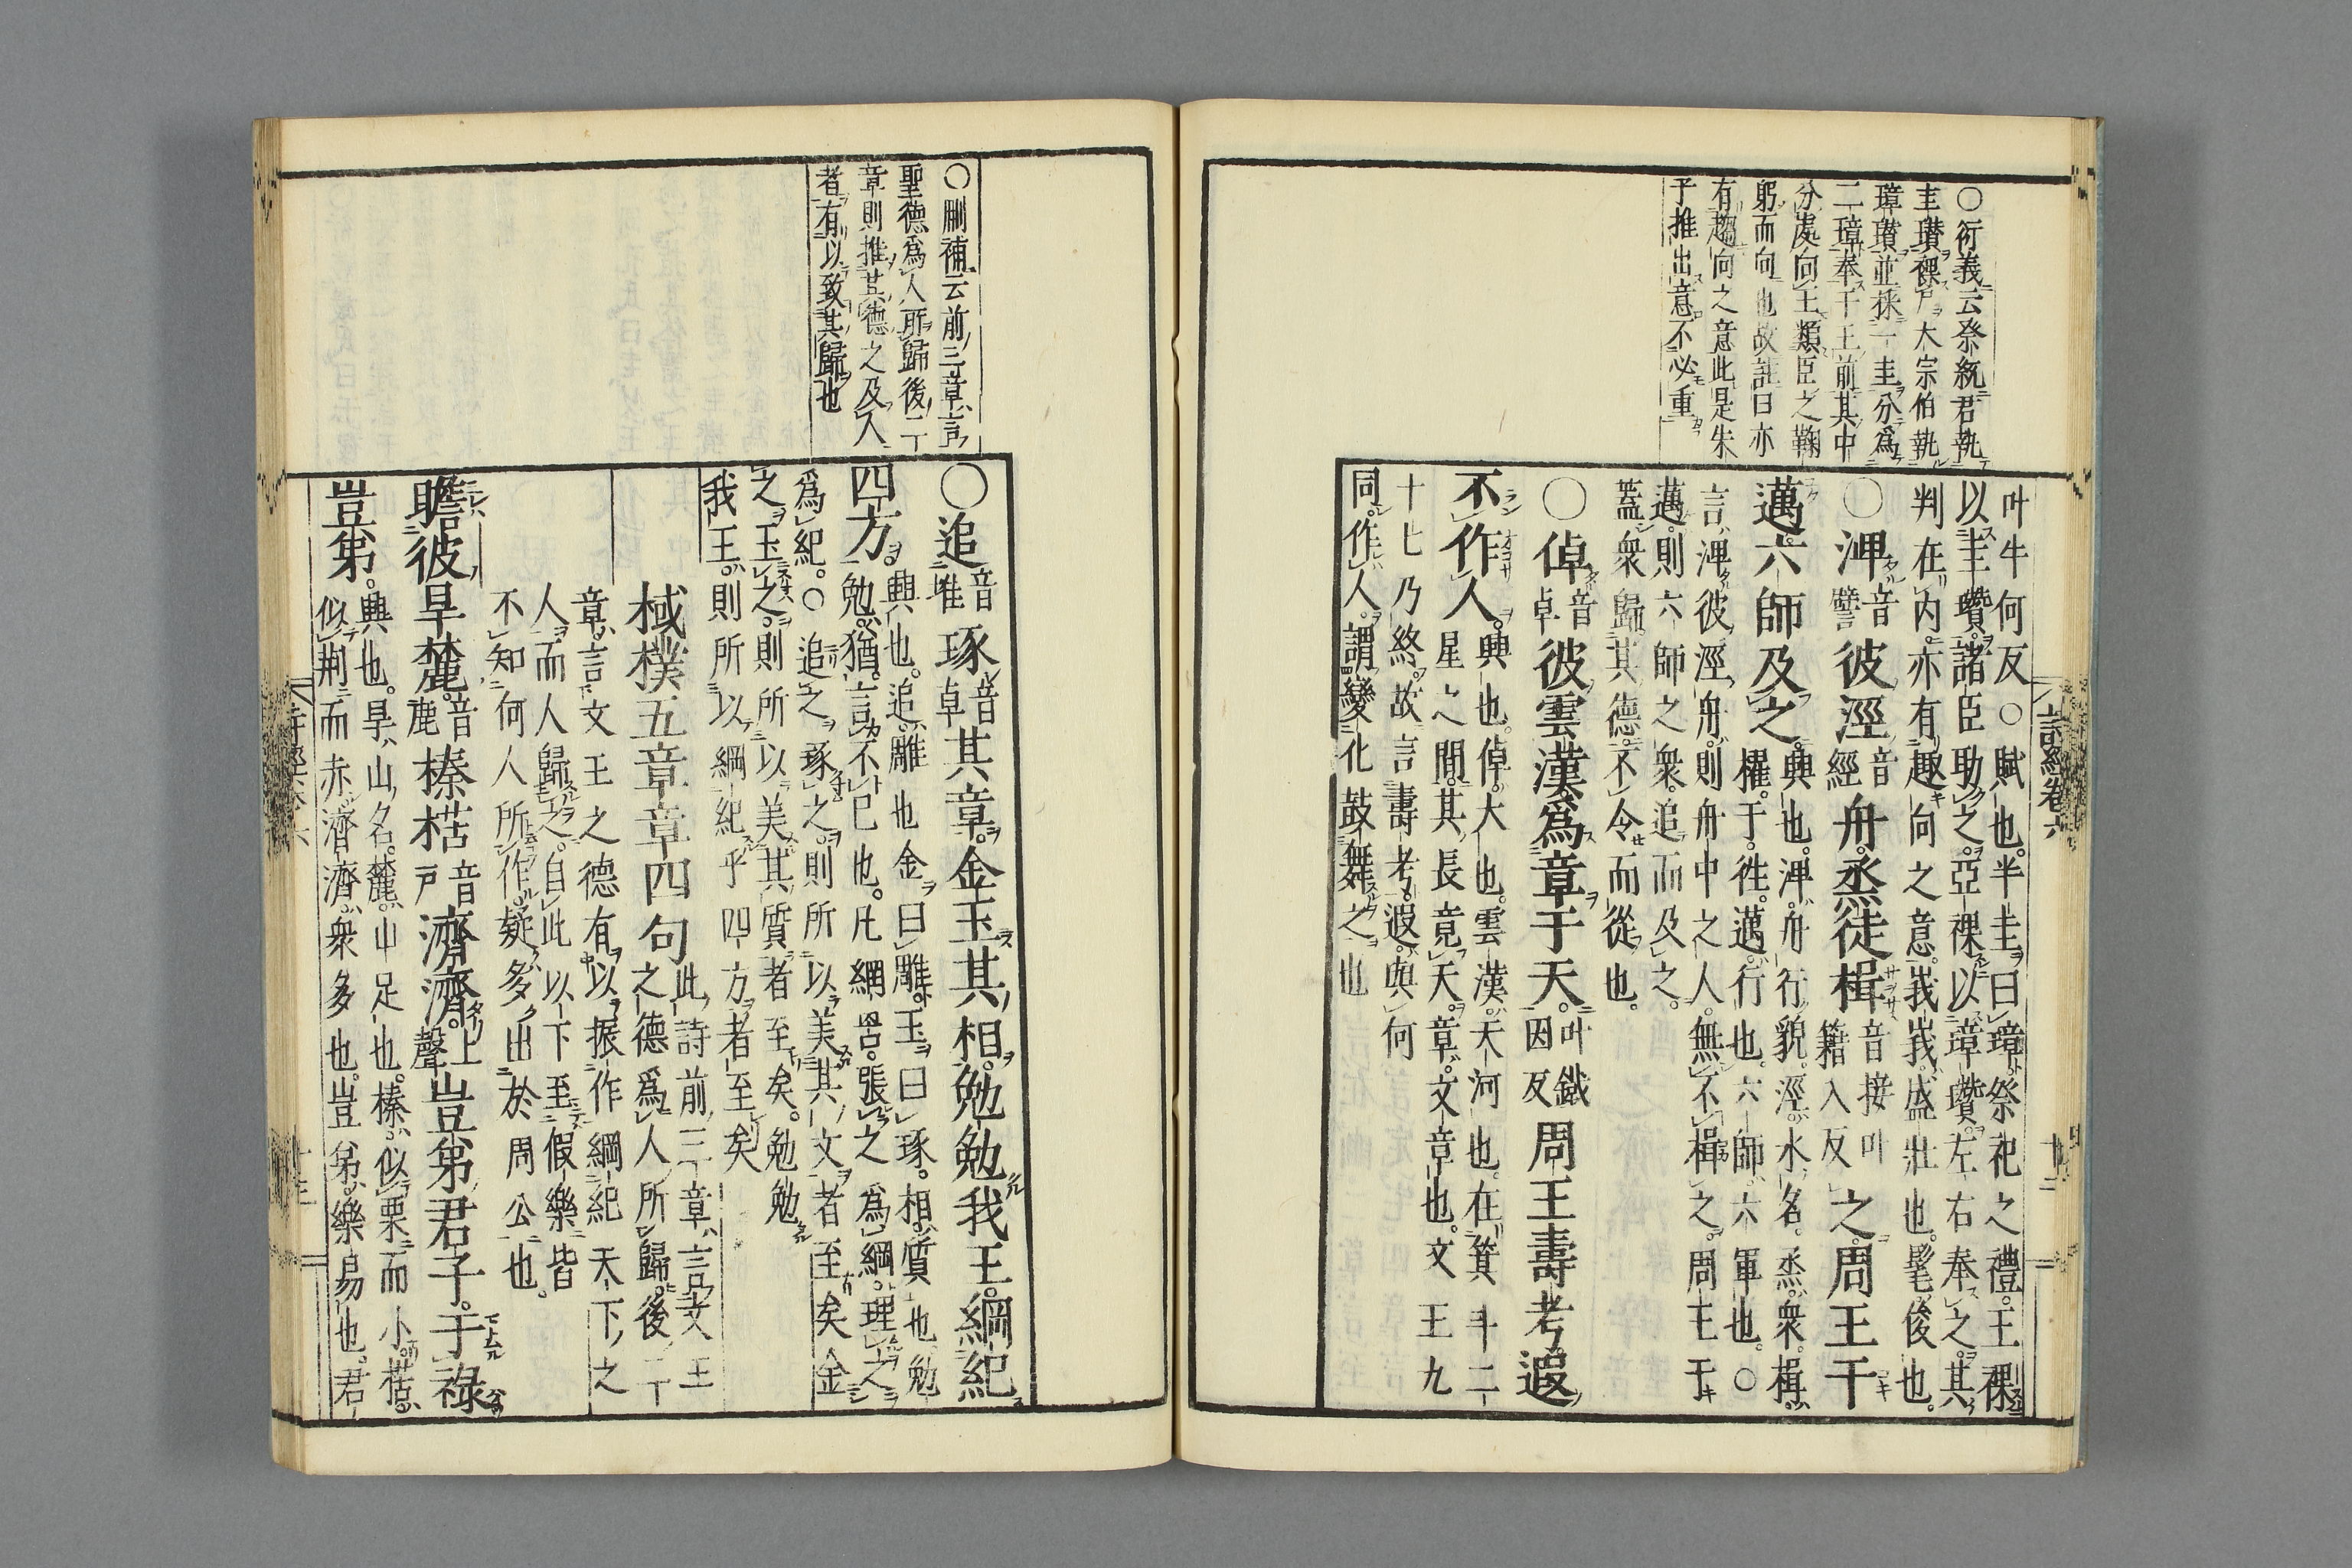 ○衍義云祭統君執
圭瓚祼尸大宗伯執
璋瓚並祩一圭分爲
二璋奉于王前其中
分處向王類臣之鞠
躬而向也故註曰亦
有趨向之意此是朱
子推出意不必重
叶牛何反○賦也半圭曰璋祭祀之禮王祼
以圭瓚諸臣助之亞祼以璋瓚左右奉之其
判在内亦有趣向之意峩峩盛壯也髦俊也
○淠音譬彼涇音經舟烝徒楫音接叶籍入反之周王于
邁六師及之興也淠舟行貌涇水名烝衆楫
櫂于徃邁行也六師六軍也○
言淠彼涇舟則舟中之人無不楫之周王于
邁則六師之衆追而及之
蓋衆歸其德不令而從也
○倬音卓彼雲漢爲章于天叶鐵因反周王壽考遐
不作人興也倬大也雲漢天河也在箕斗二
星之間其長竟天章文章也文王九
十七乃終故言壽考遐與何
同作人謂變化鼓舞之也
詩經卷六
十二
○刪補云前三章言
聖德爲人所歸後二
章則推其德之及人
者有以致其歸也
○追音堆琢音卓其章金玉其相勉勉我王綱紀
四方興也追雕也金曰雕玉曰琢相質也勉
勉猶言不已也凡網罟張之爲綱理之
爲紀○追之琢之則所以美其文者至矣金
之玉之則所以美其質者至矣勉勉
我王則所以綱紀乎四方者至矣
棫樸五章章四句此詩前三章言文王
之德爲人所歸後二
章言文王之德有以振作綱紀天下之
人而人歸之自此以下至假樂皆
不知何人所作疑多出於周公也
瞻彼旱麓音鹿榛楛音戶濟濟上聲豈弟君子干祿
豈弟興也旱山名麓山足也榛似栗而小楛
似荆而赤濟濟衆多也豈弟樂易也君